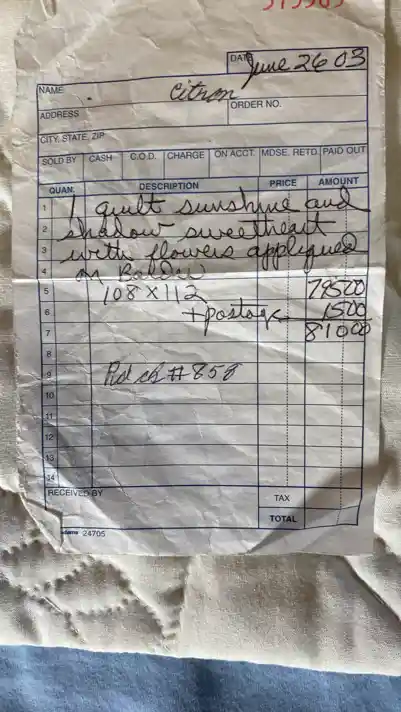 DATE June 26 03
NAME Citron
ADDRESS
ORDER NO.
CITY, STATE, ZIP
SOLD BY CASH C.O.D. CHARGE ON ACCT. MDSE. RETD. PAID OUT
QUAN. DESCRIPTION PRICE AMOUNT
1 1 quilt sunshine and
2 shadow sweetheart
3 with flowers appliqued
4 on
5 108 x 112 79500
6 + postage 1500
7 81000
8
9 Pd ck # 858
10
11
12
13
14
RECEIVED BY
TAX
TOTAL
24705